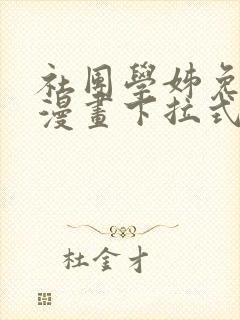 社團學姊免
漫畫下拉式
杜金才